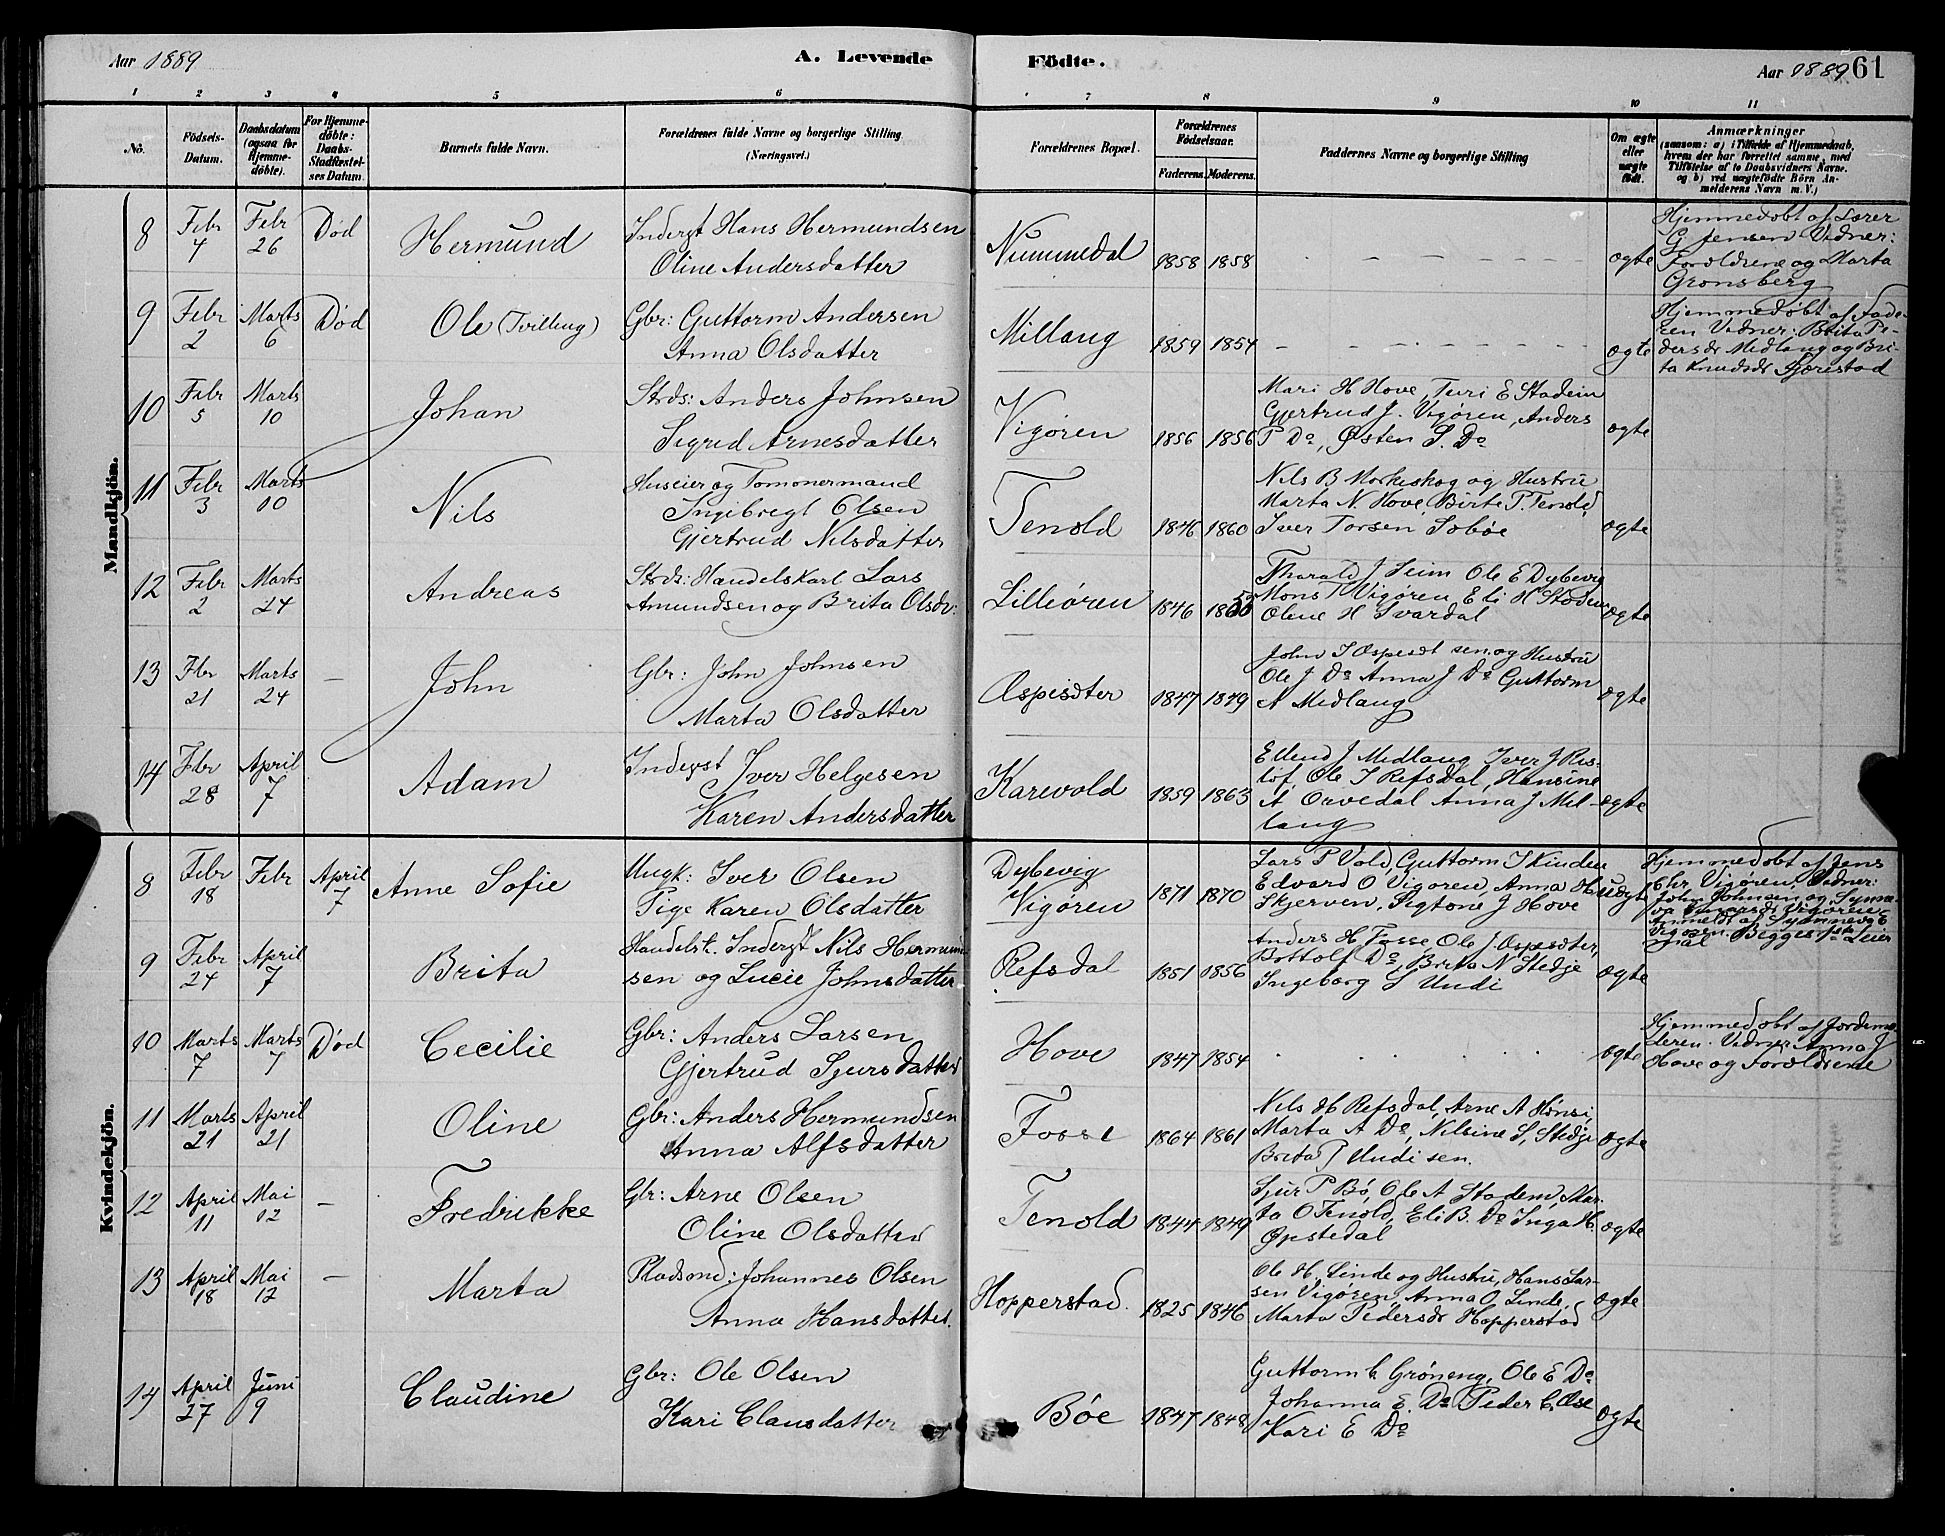 Aar 1889 A. Levende Födte. Aar 1889 61
1 2 3 4 5 6 7 8 9 10 11
No.
Födsels-Datum.
Daabsdatum (ogsaa for Hjemmedöbte).
For Hjemmedöbte: Daabs-Stadfæstelses Datum.
Barnets fulde Navn.
Forældrenes fulde Navne og borgerlige Stilling (Næringsvei.)
Forældrenes Bopæl.
Forældrenes Födselsaar.
Faderens. Moderens.
Faddernes Navne og borgerlige Stilling
Om ægte eller uægte födt.
Anmærkninger
(saasom: a) i Tilfælde af Hjemmedaab, hvem der har forrettet samme, med Tilföielse af to Daabsvidners Navne. og b) ved uægtefödte Börn Anmelderens Navn m. V.)
Mandkjön.
8 Febr 4 Febr 26 Død Hermund
Inderst Hans Hermundsen
Oline Andersdatter
Nummedal 1858 1858 ægte
Hjemmedøbt af Lærer
G. Jensen Vidner:
Forældrene og Marta
Grønsberg
9 Febr 2 Marts 6 Død Ole (Tvilling)
Gbr: Guttorm Andersen
Anna Olsdatter
Millang 1859 1854 ægte
Hjemmedøbt af Fade-
ren Vidner: Brita Pe-
dersdr Medlang og Bri-
ta Knudsdr
10 Febr 5 Marts 10 Johan
Strds: Anders Johnsen
Sigrid Arnesdatter
Vigøren 1856 1856
Mari H Hove, Turi E Stadeim
Gjertrud J. Vigøren, Anders
P Do, Østen S. Do
ægte
11 Febr 3 Marts 10 Nils
Huseier og Tømmermand
Ingebregt Olsen
Gjertrud Nilsdatter
Tenold 1846 1860
Nils B Morkeskog og Hustru
Marta N. Hove, Birte T. Tenold
Iver Torsen Sobøe
ægte
12 Febr 2 Marts 24 Andreas
Strds: Handelskarl Lars
Amundsen og Brita Olsdr:
Lilleøren 1846
Tharald J Seim Ole E Dybevig
Mons T Vigøren, Eli H Stadeim
Oline H Svardal
ægte
13 Fbr 21 Marts 24 – John
Gbr: John Johnsen
Marta Olsdatter
Øspisdter 1847 1849
John I Øspesdt sen. og Hustru
Ole J Do Anna J Do Guttorm
A Medlang
ægte
14 Fbr 28 April 7 Adam
Inderst Iver Helgesen
Karen Andersdatter
Karevold 1859 1863
Ellend J Medlang Iver J Ris-
løf, Ole I Refsdal, Hansine
A Orvedal Anna J Mil-
lang
ægte
Kvindekjön.
8 Febr 18 Febr April 7 Anne Sofie
Ungk: Iver Olsen
Pige Karen Olsdatter
Dybevig
Vigøren
1871 1870
Lars P Vold Guttorm I Kinden
Edvard O Vigøren Anna H
Skjerven, Sigtone J Hove
uægte
Hjemmedøbt af Jens
Chr. Vigøren, Vidner:
John Johnsen og Synne-
Vigøren
Anmeldt af Synneva E
Vigøren. Begges 1ste Leier
maal
9 Febr 24 April 7 Brita
Handelsk. Inderst Nils Hermund-
sen og Lucie Johnsdatter
Refsdal 1851 1856
Anders H Fosse Ole J. Øspesdter,
Bottolf Do, Brita N Stedje
Ingeborg S Undi
ægte
10 Marts 7 Marts 7 Død Cecilie
Gbr: Anders Larsen
Gjertrud Sjursdatter
Hove 1847 1854 ægte
Hjemmedøbt af Jordemo-
deren. Vidner Anna J
Hove og Forældrene
11 Marts 21 April 21 Oline
Gbr: Anders Hermundsen
Anna Alfsdatter
Fosse 1864 1861
Nils H Refsdal, Arne A Hønsi,
Marta A Do, Nilsine S. Stedje
Brita P Undi sen.
ægte
12 April 11 Mai 12 – Fredrikke
Gbr: Arne Olsen
Oline Olsdatter
Tenold 1844 1849
Sjur P Bø, Ole A Stadem, Mar-
ta O Tenold, Eli B. Do Inga H.
Opstedal
ægte
13 April 18 Mai 12 – Marta
Pladsmd: Johannes Olsen
Anna Hansdatter.
Hopperstad. 1825 1846
Ole H. Linde og Hustru, Hans Lar-
sen Vigøren, Anna O Linde,
Marta Pedersdr Hopperstad
ægte
14 April 27 Juni 9 Claudine
Gbr: Ole Olsen
Kari Clausdatter
Bøe 1847 1848
Guttorm C Grøneng, Ole E Do
Johanna E. Do Peder C. Øse
Kari E Do
ægte